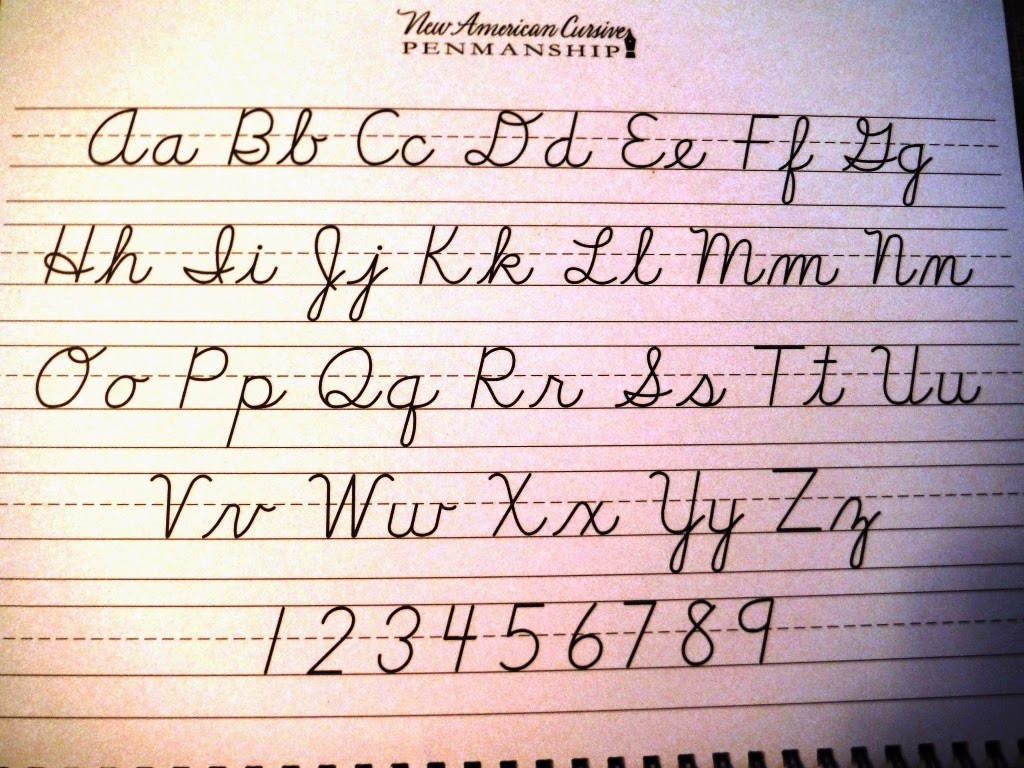 New American Cursive
PENMANSHIP
Aa Bb Cc Dd Ee Ff Gg
Hh Ii Jj Kk Ll Mm Nn
Oo Pp Qq Rr Ss Tt Uu
Vv Ww Xx Yy Zz
1 2 3 4 5 6 7 8 9